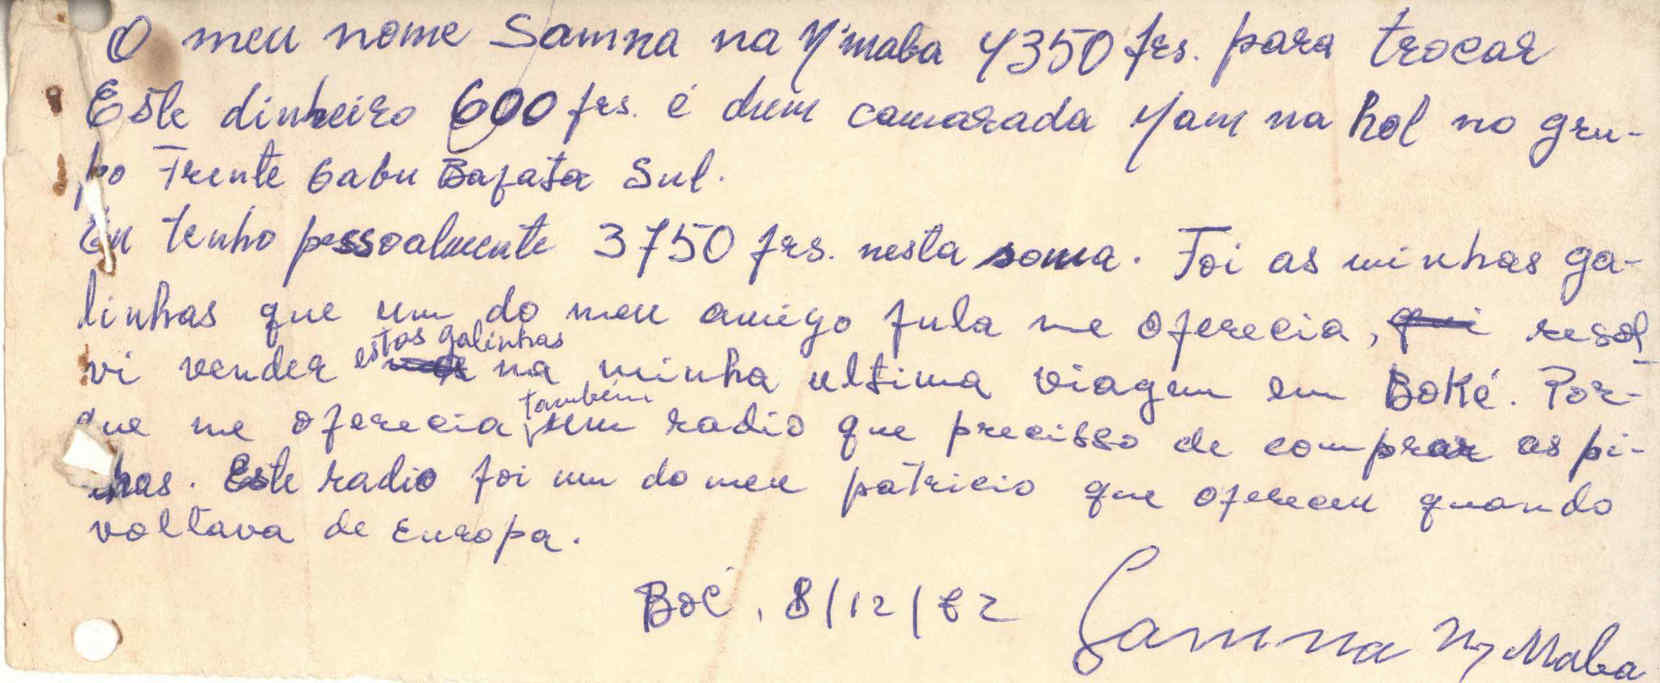 O meu nome Samna na N'maba 4350 frs. para trocar
Este dinheiro 600 frs. é dum camarada Yam na hol no gru-
po Frente Gabu Bafata Sul.
Eu tenho pessoalmente 3750 frs. nesta soma. Foi as minhas ga-
linhas que um do meu amigo fula me oferecia, resol-
vi vender estas galinhas na minha ultima viagem em Boké. Por-
que me oferecia também um radio que precisso de comprar as pi-
lhas. Este radio foi um do meu patricio que ofereceu quando
voltava de Europa.
Boé, 8/12/72
Samna N'Maba